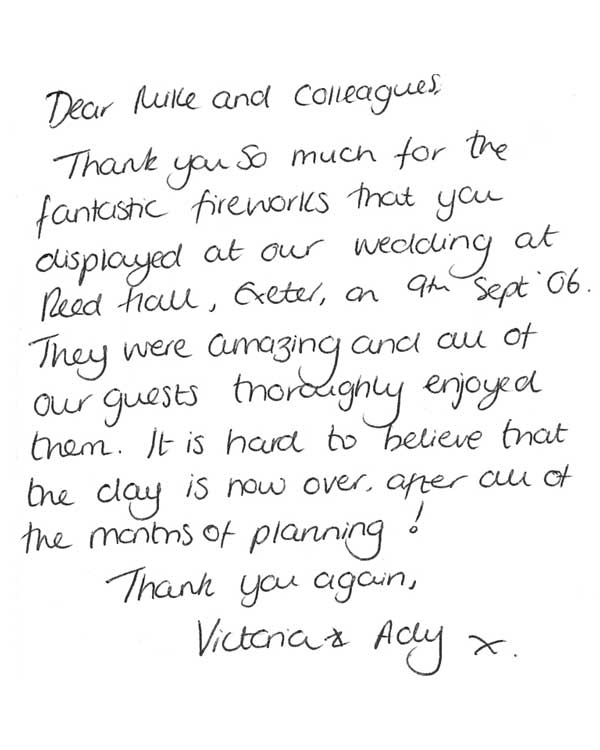 Dear Mike and Colleagues,
Thank you so much for the
fantastic fireworks that you
displayed at our wedding at
Reed hall, Exeter, on 9th Sept '06.
They were amazing and all of
our guests thoroughly enjoyed
them. It is hard to believe that
the day is now over, after all of
the months of planning!
Thank you again,
Victoria & Ady x.